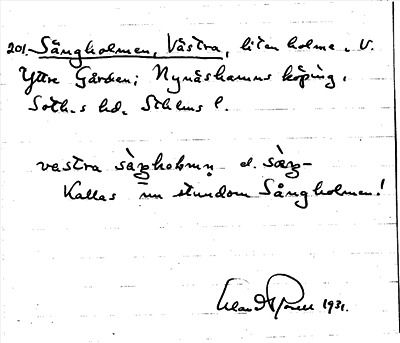 201. Sångholmen, Västra, liten holme. V.
Yttre Gården; Nynäshamns köping,
Soth-s hd. Sthlms l.
vastra sàŋholmn̥ el. sàŋ-
Kallas nu stundom Sångholmen!
1931.